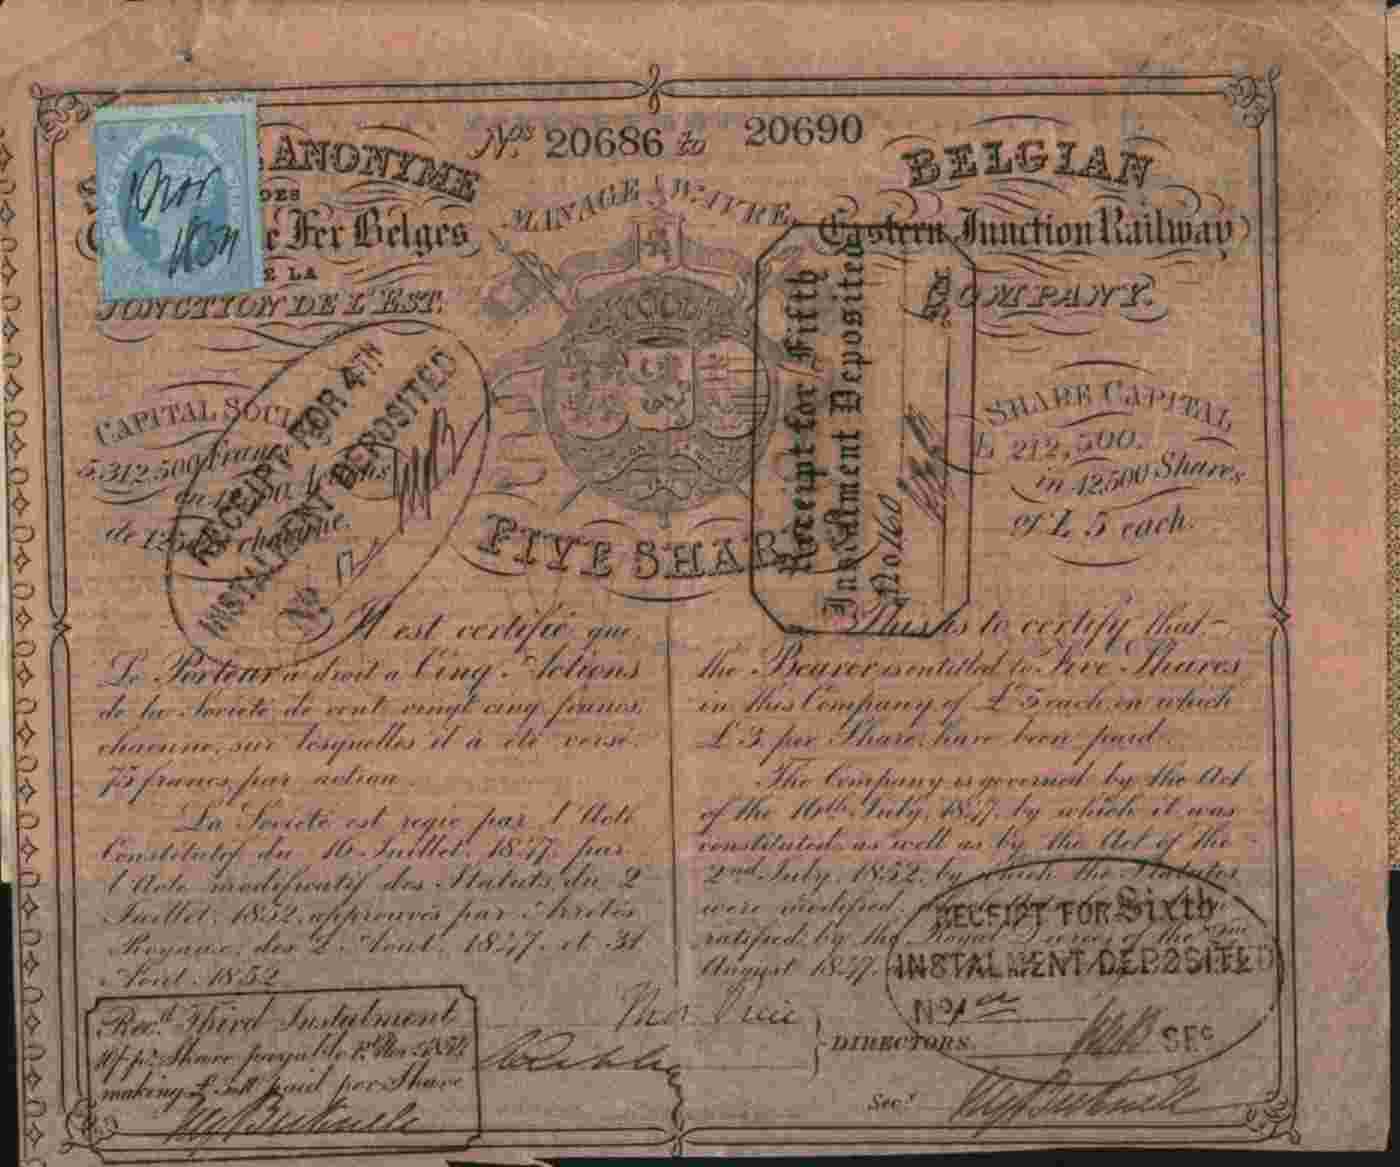 Nos. 20686 to 20690
ANONYME
DES
Fer Belges
LA
JONCTION DE L'EST.
MANAGE WAVRE
BELGIAN
Eastern Junction Railway
COMPANY.
CAPITAL SOCI
5,312,500 Francs
de 125 chacune.
RECEIPT FOR 4TH
INSTALMENT DEPOSITED
No 12
Receipt for Fifth
Instalment Deposited
No 160
SHARE CAPITAL
£ 212,500.
in 42,500 Shares
of £ 5 each.
FIVE SHAR
Il est certifié que
Le Porteur a droit à Cinq Actions
de la Société de cent vingt cinq francs,
chacune, sur lesquelles il a été versé
75 francs, par action.
La Société est régie par l'Acte
Constitutif du 16 Juillet, 1847, par
l'Acte modificatif des Statuts, du 2
Juillet, 1852, approuvés par Arrêtés
Royaux, des 2 Aout, 1847, et 31
Aout, 1852
This is to certify that
the Bearer is entitled to Five Shares
in this Company of £ 5 each, on which
£ 3, per Share, have been paid.
The Company is governed by the Act
of the 16th July, 1847, by which it was
constituted, as well as by the Act of the
2nd July, 1852, by which the Statutes
were modified,
ratified, by the Royal Decrees of the 2nd
August 1847,
RECEIPT FOR Sixth
INSTALMENT DEPOSITED
No
SEC
Recd. Third Instalment
pr. Share payable
making £ paid per Share
DIRECTORS.
Secy.